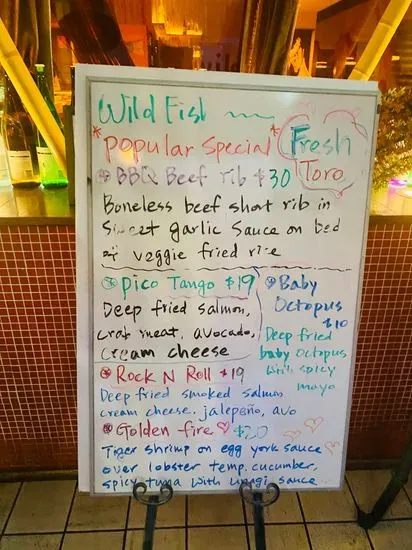 Wild Fish
*Popular Special*
Fresh
Toro
BBQ Beef rib $30
Boneless beef short rib in
Sweet garlic Sauce on bed
of veggie fried rice
Pico Tango $19
Deep fried salmon,
crab meat, avocado,
cream cheese
Baby
Octopus
$10
Deep fried
baby octopus
with spicy
mayo
Rock N Roll $19
Deep fried smoked salmon
cream cheese.. jalepeño, avo
Golden fire $20
Tiger shrimp on egg york sauce
over lobster temp. cucumber,
spicy tuna with unagi sauce